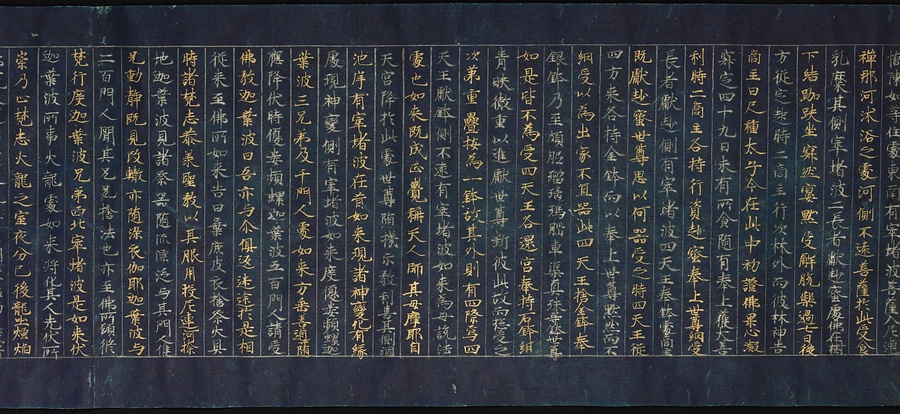 憍陳如等住處東南有窣堵波菩薩入尼連
禪那河沐浴之處河側不遠菩薩於此受食
乳糜其側窣堵波二長者獻麨蜜處佛在樹
下結跏趺坐寂然宴默受解脫樂過七日後
方從定起時二商主行次林外而彼林神告
商主曰尺種太子今在此中初證佛果心凝
寂定四十九日未有所食隨有奉上獲大善
利時二商主各持行資麨蜜奉上世尊納受
長者獻麨側有窣堵波四天王奉鉢處商主
既獻麨蜜世尊思以何器受之時四天王從
四方來各持金鉢而以奉上世尊默然而不
納受以為出家不宜器此四天王捨金鉢奉
銀鉢乃至頗胝瑠璃馬腦車渠真珠等鉢世尊
如是皆不為受四天王各還宮奉持石鉢紺
青映徹重以進獻世尊斷彼此故而總受之
次第重疊按為一鉢故其外則有四隆焉四
天王獻鉢側不遠有窣堵波如來為母說法
處也如來既成正覺稱天人師其母摩耶自
天宮降於此處世尊隨機示教利喜其側涸
池岸有窣堵波在昔如來現諸神變化有緣
處現神變側有窣堵波如來度優婁頻螺迦
葉波三兄弟及千門人處如來方垂善道隨
應降伏時優婁頻螺迦葉波五百門人請受
佛教迦葉波曰吾亦与尒俱返迷途於是相
從來至佛所如來告曰棄鹿皮衣捨祭火具
時諸梵志恭承聖教以其服用投尼連河捺
地迦葉波見諸祭器隨流漂泛与其門人候
兄動靜既見改轍亦隨染衣伽耶迦葉波与
二百門人聞其兄之捨法也亦至佛所願修
梵行度迦葉波兄弟西北窣堵波是如來伏
迦葉波所事火龍處如來將化其人先伏所
崇乃止梵志火龍之室夜分已後龍吐煙焰